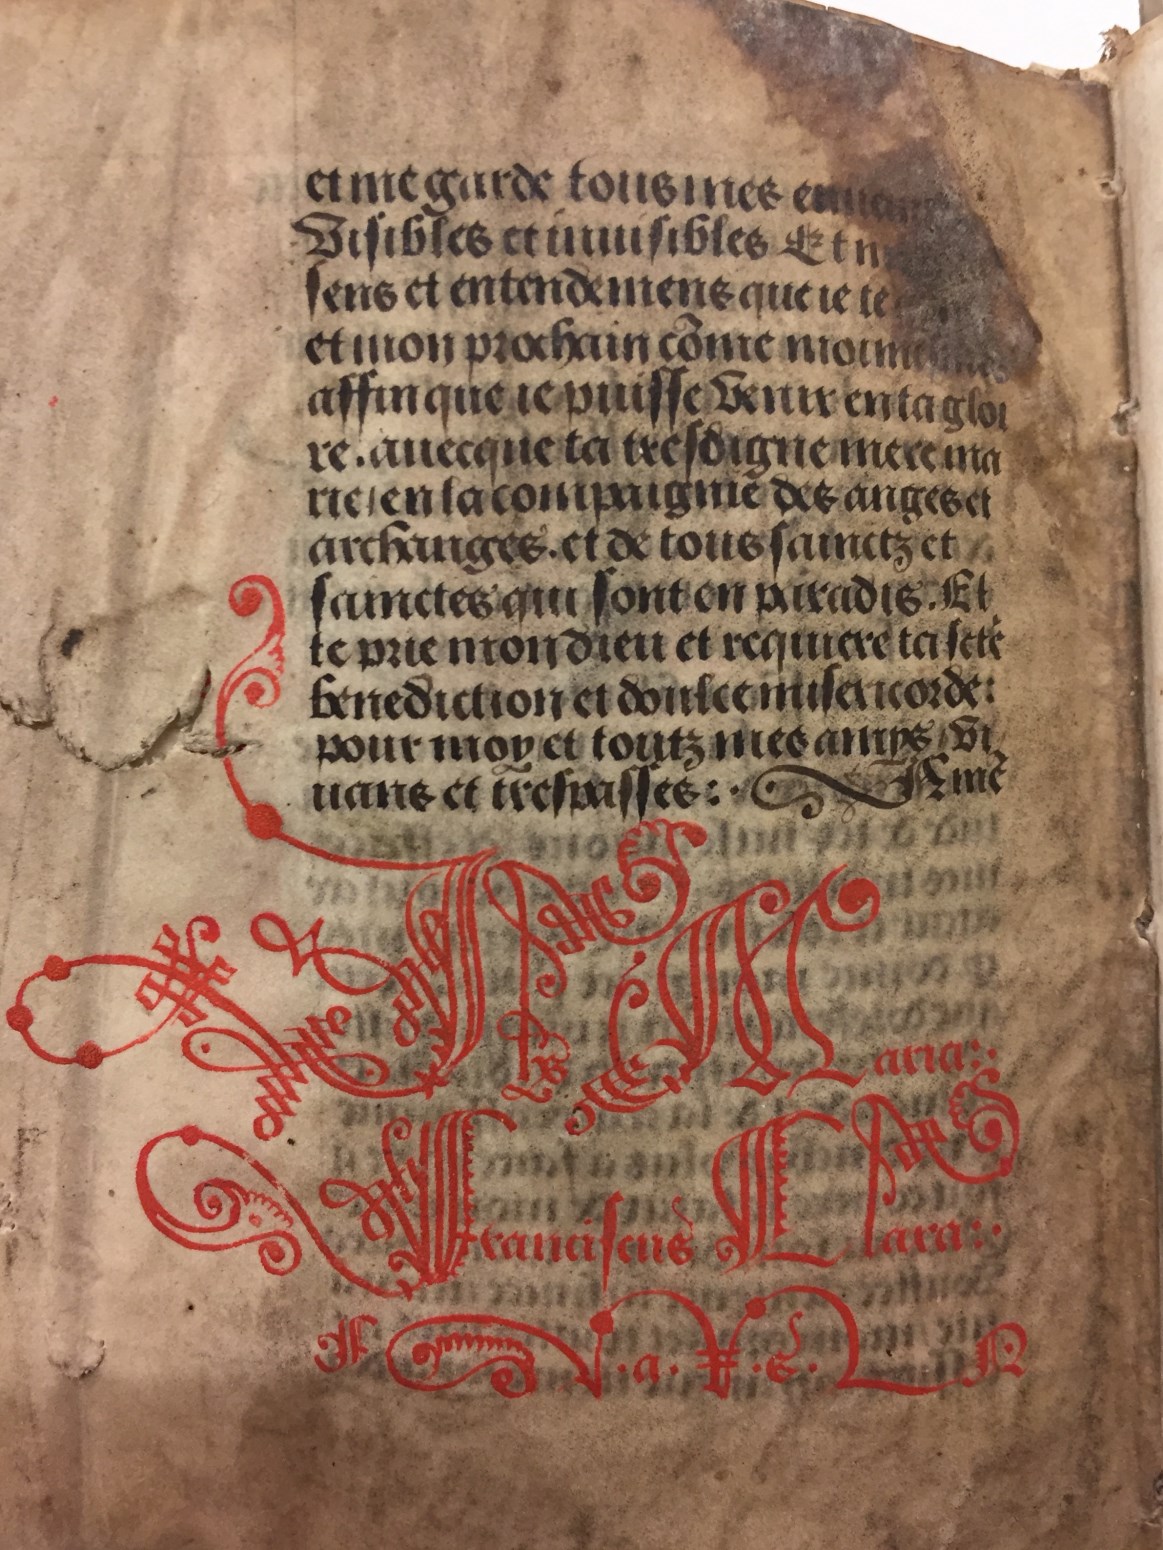 et me garde tous mes ennemis
Visibles et inuisibles Et
sens et entendemens que ie te
et mon prochain cõme moimesmes
affin que ie puisse Venir en ta gloi
re. auecque ta tresdigne mere ma
rie/en la compaignie des anges et
archanges. et de tous sainctz et
sainctes qui sont en paradis. Et
te prie mon dieu et requiere ta scté
benediction et doulce misericorde:
pour moy et toutz mes amys/Vi
uans et trespasses:· Amẽ
Maria:·
Franciscus Clara:·